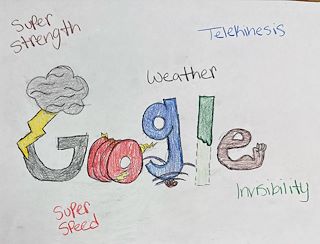 Super
Strength
Telekinesis
Weather
Google
Invisibility
Super
Speed